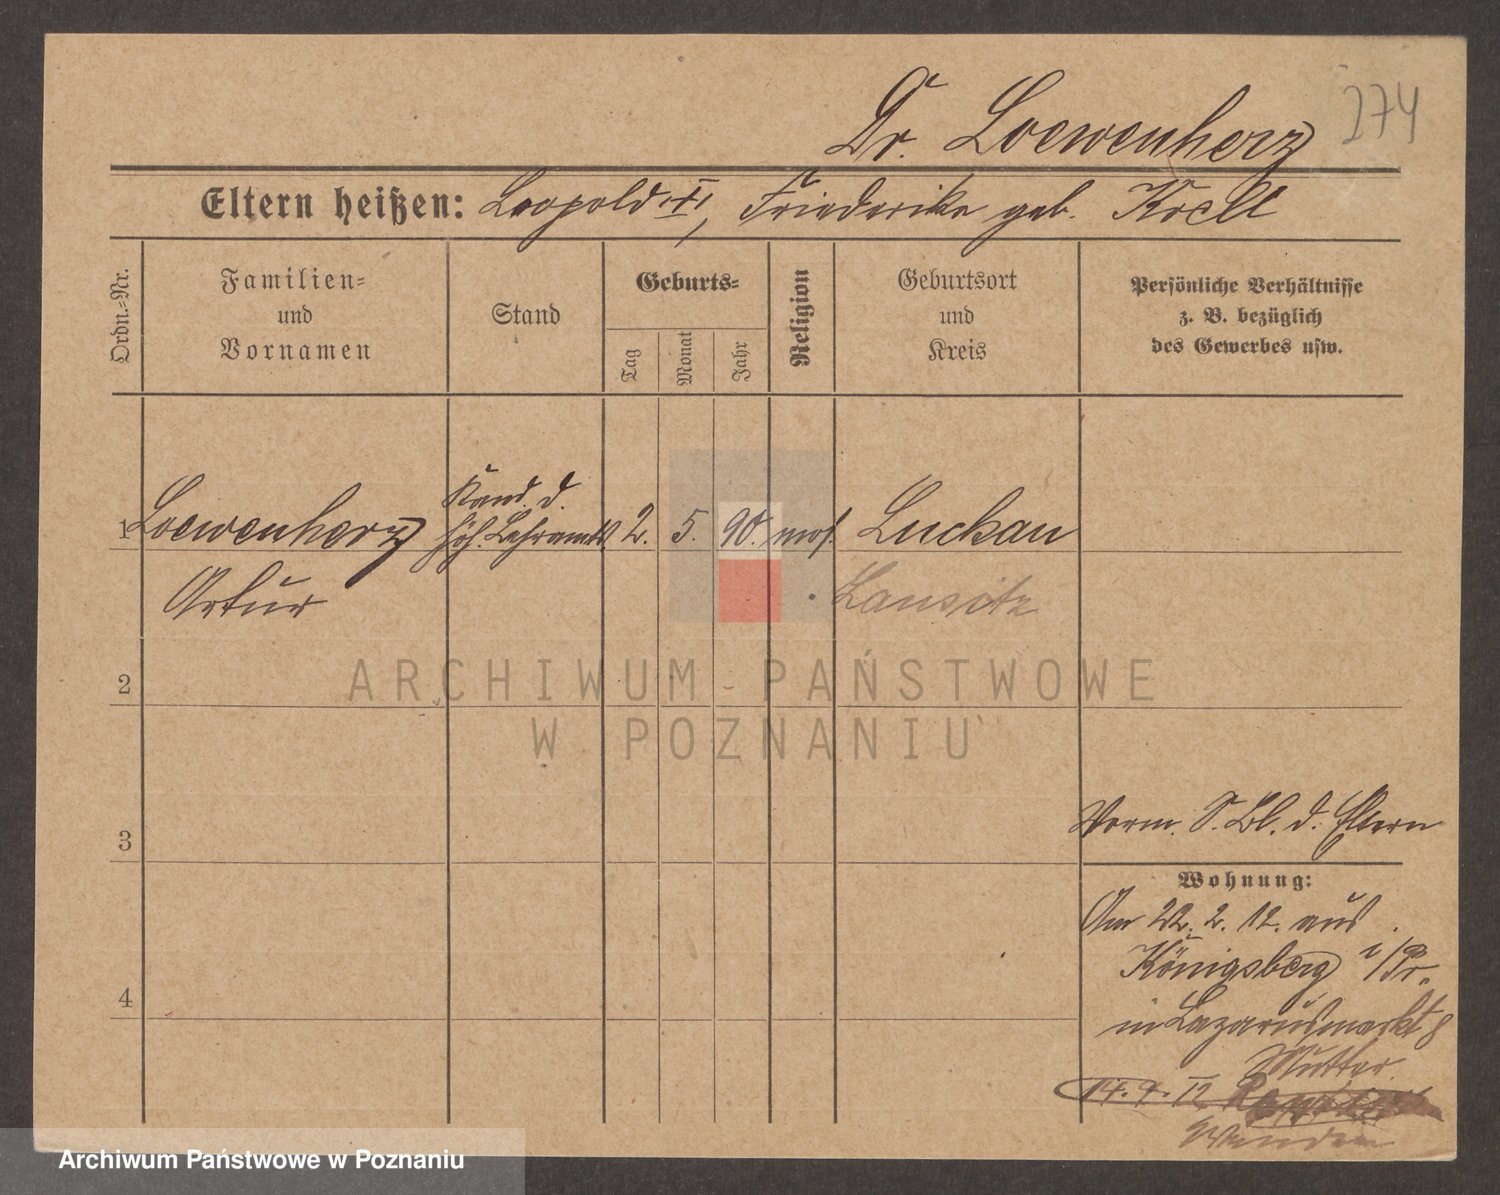 Dr. Loewenherz 274
Eltern heißen: Leopold (†), Friederike geb. Krell
Ordn.-Nr. Familien= und Vornamen Stand Geburts= Tag Monat Jahr Religion Geburtsort und Kreis Persönliche Verhältnisse z. B. bezüglich des Gewerbes usw.
Kand. d.
1 Loewenherz höh. Lehramts 2. 5. 90. mos. Luckau
Artur Lausitz
ARCHIWUM PAŃSTWOWE
2
W POZNANIU
3 Verm. S. Bl. d. Eltern
Wohnung:
Am 22. 2. 12. aus
Königsberg i/Pr.
4
in Lazarusmarkt 8
Mutter.
14. 9. 12
Wenden
Archiwum Państwowe w Poznaniu